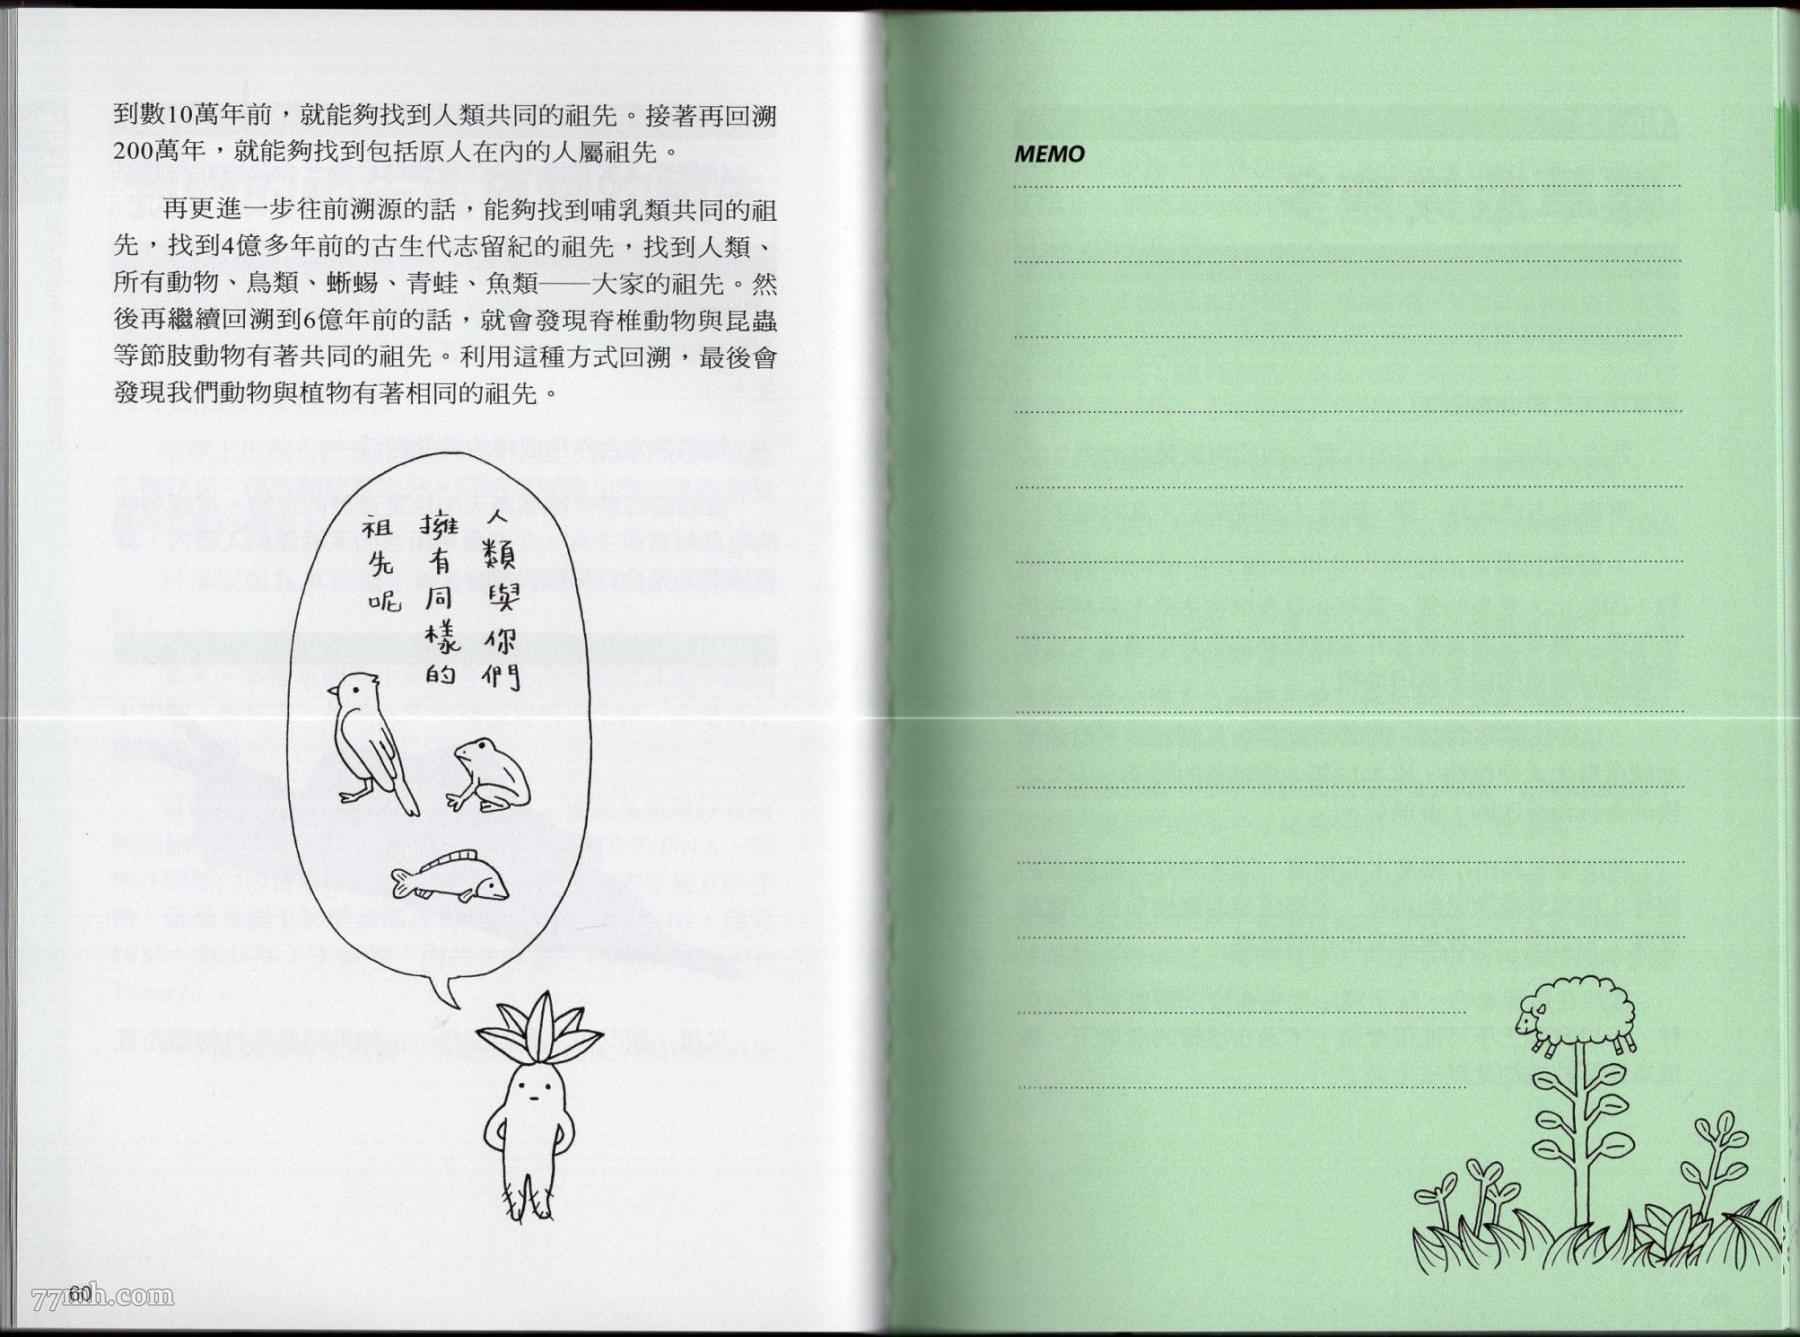 到數10萬年前，就能夠找到人類共同的祖先。接著再回溯
200萬年，就能夠找到包括原人在內的人屬祖先。
再更進一步往前溯源的話，能夠找到哺乳類共同的祖
先，找到4億多年前的古生代志留紀的祖先，找到人類、
所有動物、鳥類、蜥蜴、青蛙、魚類——大家的祖先。然
後再繼續回溯到6億年前的話，就會發現脊椎動物與昆蟲
等節肢動物有著共同的祖先。利用這種方式回溯，最後會
發現我們動物與植物有著相同的祖先。
人類與你們
擁有同樣的
祖先呢
60
77mh.com
MEMO